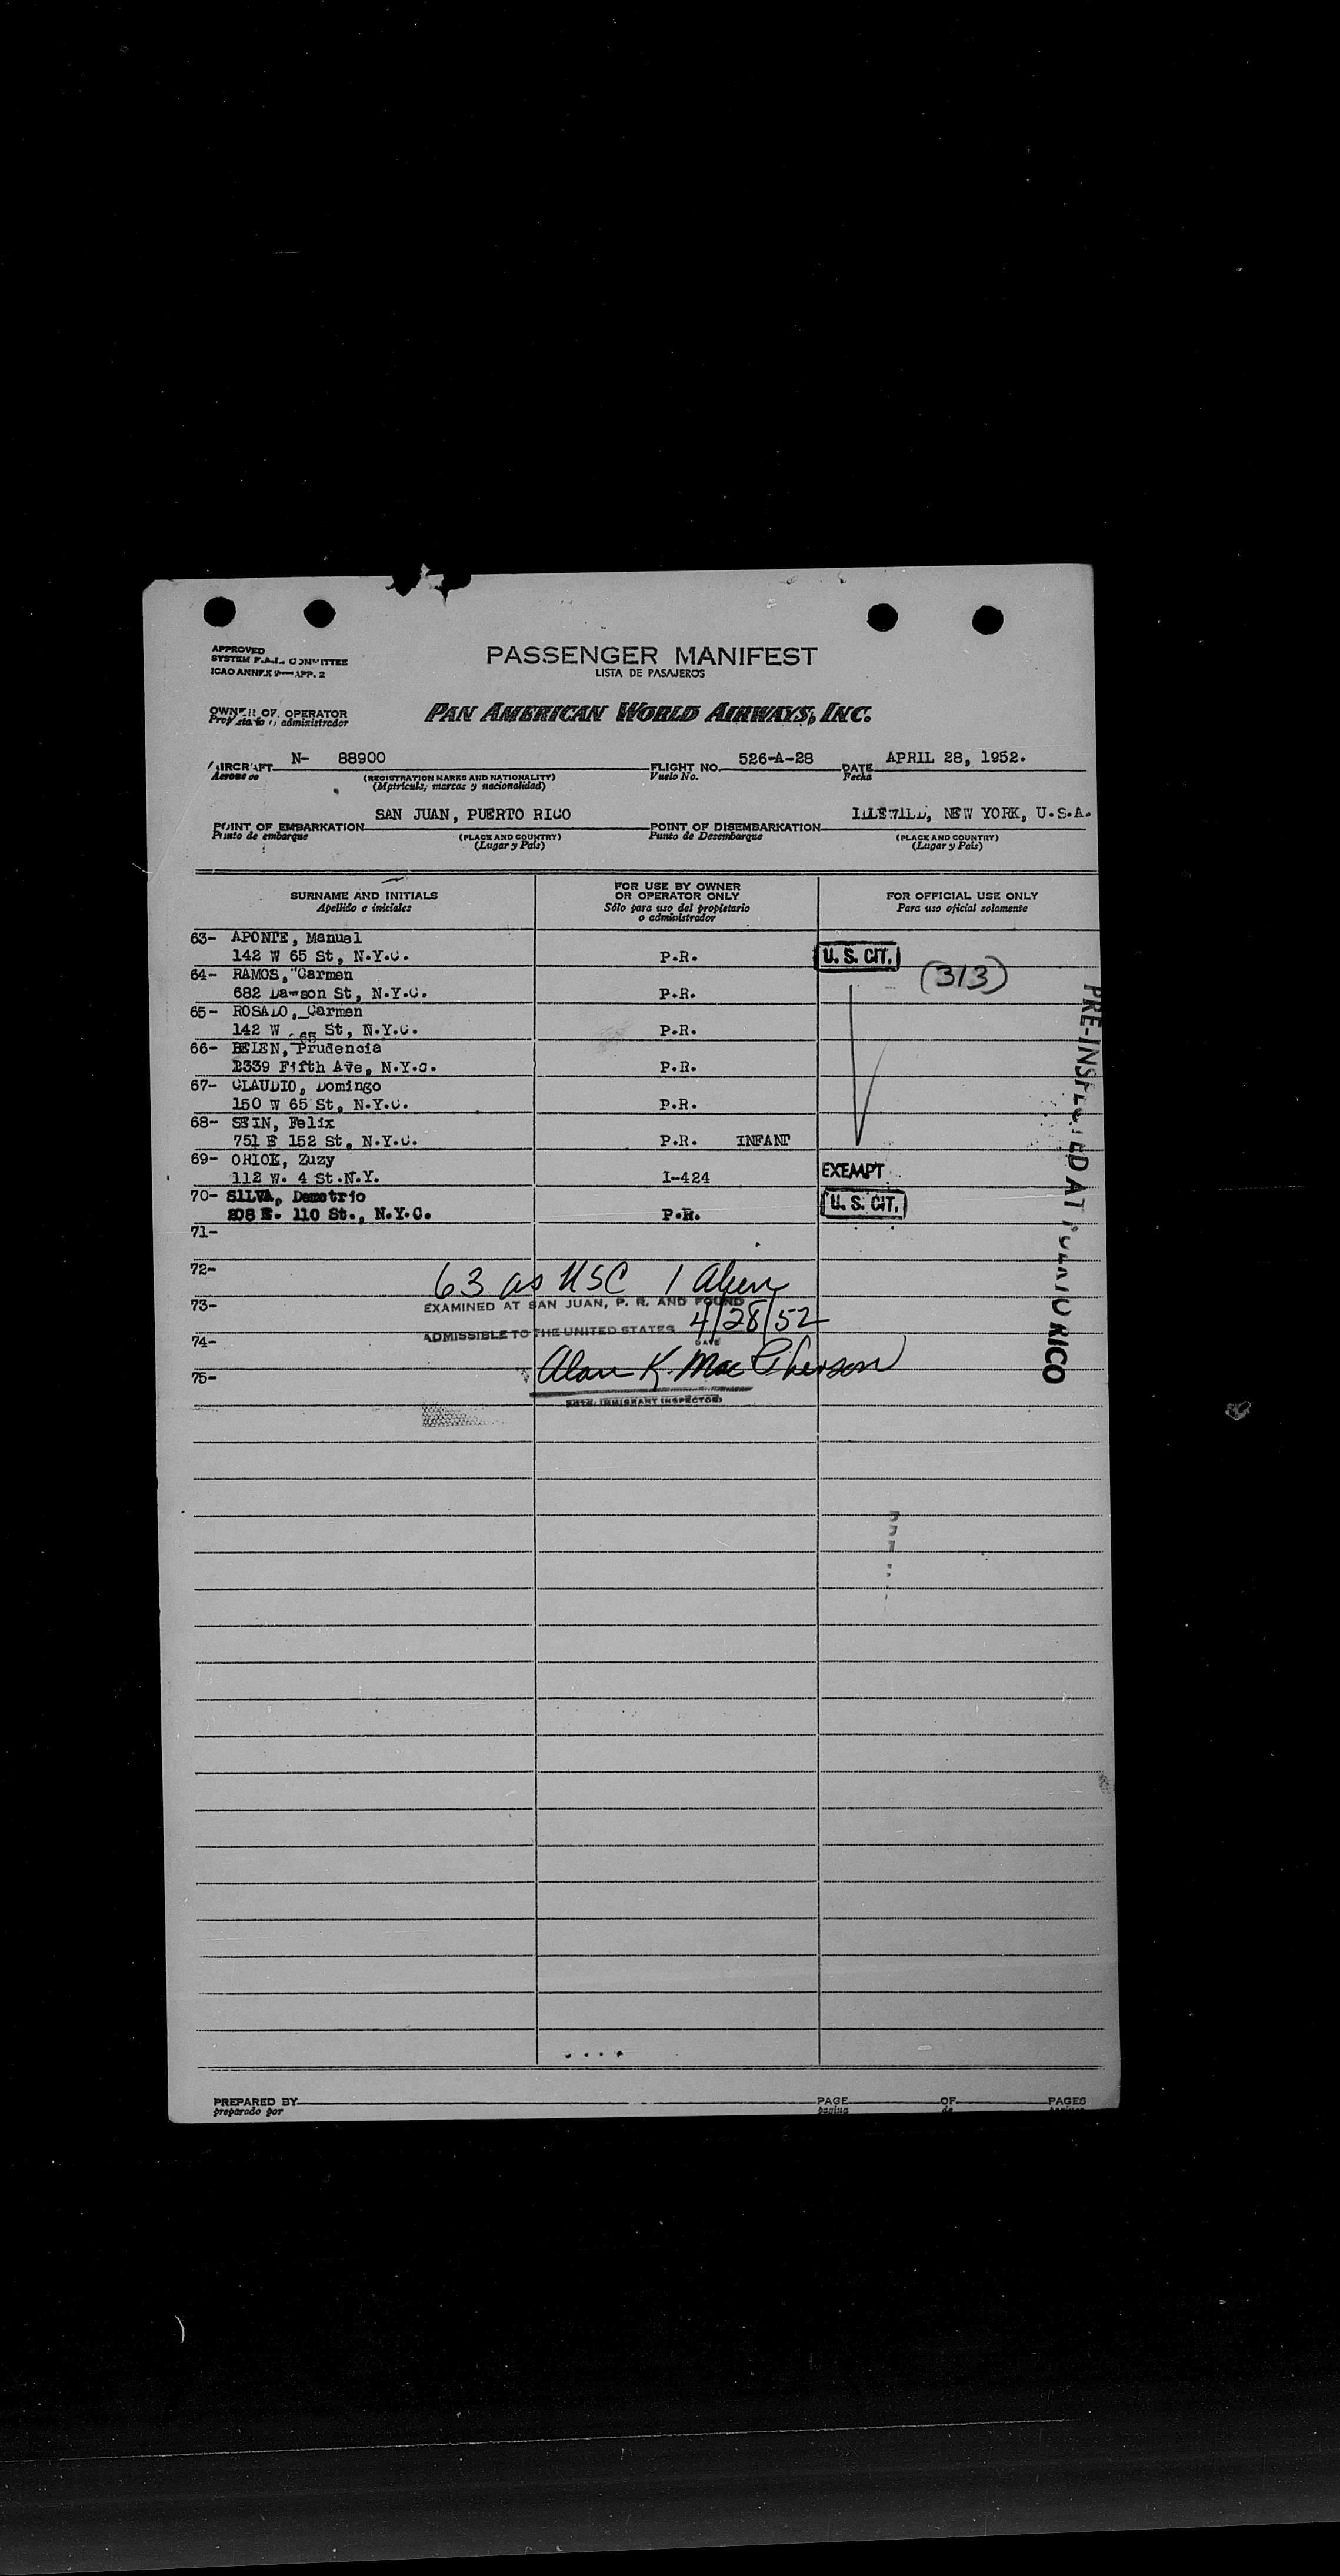 APPROVED
SYSTEM F.A.L. COMMITTEE
ICAO ANNEX 9—APP. 2
PASSENGER MANIFEST
LISTA DE PASAJEROS
OWNER OR OPERATOR
Propietario o administrador
PAN AMERICAN WORLD AIRWAYS, INC.
AIRCRAFT N- 88900 FLIGHT NO. 526-A-28 DATE APRIL 28, 1952.
Aeronave (REGISTRATION MARKS AND NATIONALITY) Vuelo No. Fecha
(Matricula, marcas y nacionalidad)
POINT OF EMBARKATION SAN JUAN, PUERTO RICO POINT OF DISEMBARKATION IDLEWILD, NEW YORK, U.S.A.
Punto de embarque (PLACE AND COUNTRY) Punto de Desembarque (PLACE AND COUNTRY)
(Lugar y País) (Lugar y País)
SURNAME AND INITIALS FOR USE BY OWNER OR OPERATOR ONLY FOR OFFICIAL USE ONLY
Apellido e iniciales Sólo para uso del propietario o administrador Para uso oficial solamente
63- APONTE, Manuel
142 W 65 St, N.Y.C. P.R. U. S. CIT.
64- RAMOS, Carmen (313)
682 Dawson St, N.Y.C. P.R.
65- ROSADO, Carmen
142 W 65 St, N.Y.C. P.R.
66- BELEN, Prudencia
2339 Fifth Ave, N.Y.C. P.R.
67- CLAUDIO, Domingo
150 W 65 St, N.Y.C. P.R.
68- SEIN, Felix
751 E 152 St, N.Y.C. P.R. INFANT
69- ORICK, Zuzy
112 W. 4 St.N.Y. I-424 EXEMPT
70- SILVA, Demetrio
208 E. 110 St., N.Y.C. P.R. U. S. CIT.
71-
72-
63 as USC 1 Alien
73-
EXAMINED AT SAN JUAN, P. R. AND FOUND
ADMISSIBLE TO THE UNITED STATES 4/28/52
DATE
74-
Alan K. MacPherson
75-
IMMIGRANT INSPECTOR
PRE-INSPECTED AT PUERTO RICO
PREPARED BY PAGE OF PAGES
preparado por pagina de